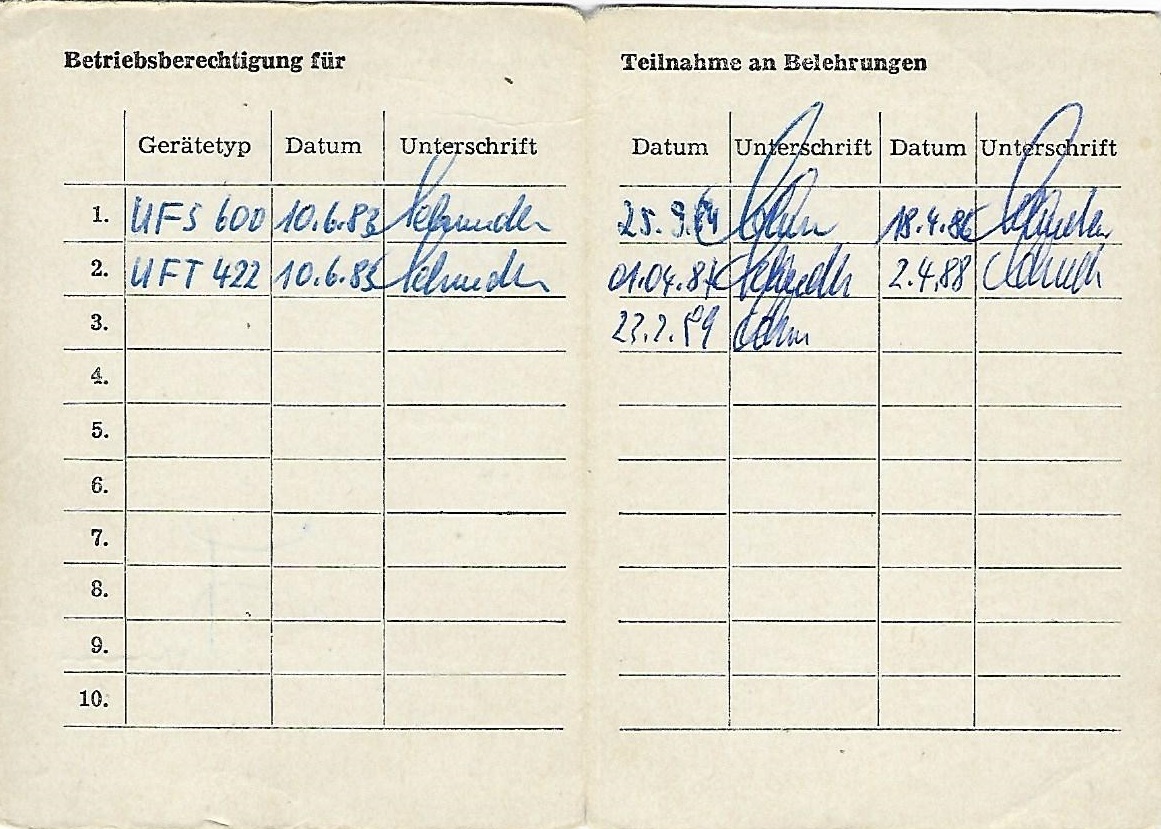 Betriebsberechtigung für
Gerätetyp Datum Unterschrift
1. UFS 600 10.6.83
2. UFT 422 10.6.83
3.
4.
5.
6.
7.
8.
9.
10.
Teilnahme an Belehrungen
Datum Unterschrift Datum Unterschrift
25.9.84 18.4.86
01.04.87 2.4.88
23.2.89